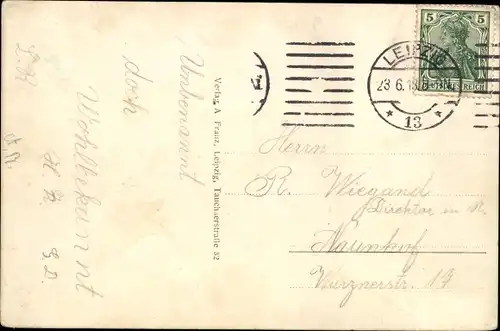 5
DEUTSCHES REICH
LEIPZIG
23.6.13.
* 13 *
Unbenannt
doch
Wohlbekannt
H. B.
Verlag A. Franz, Leipzig, Tauchaerstraße 32
Herrn
R. Wiegand
Direktor
Naunhof
Wurznerstr. 17